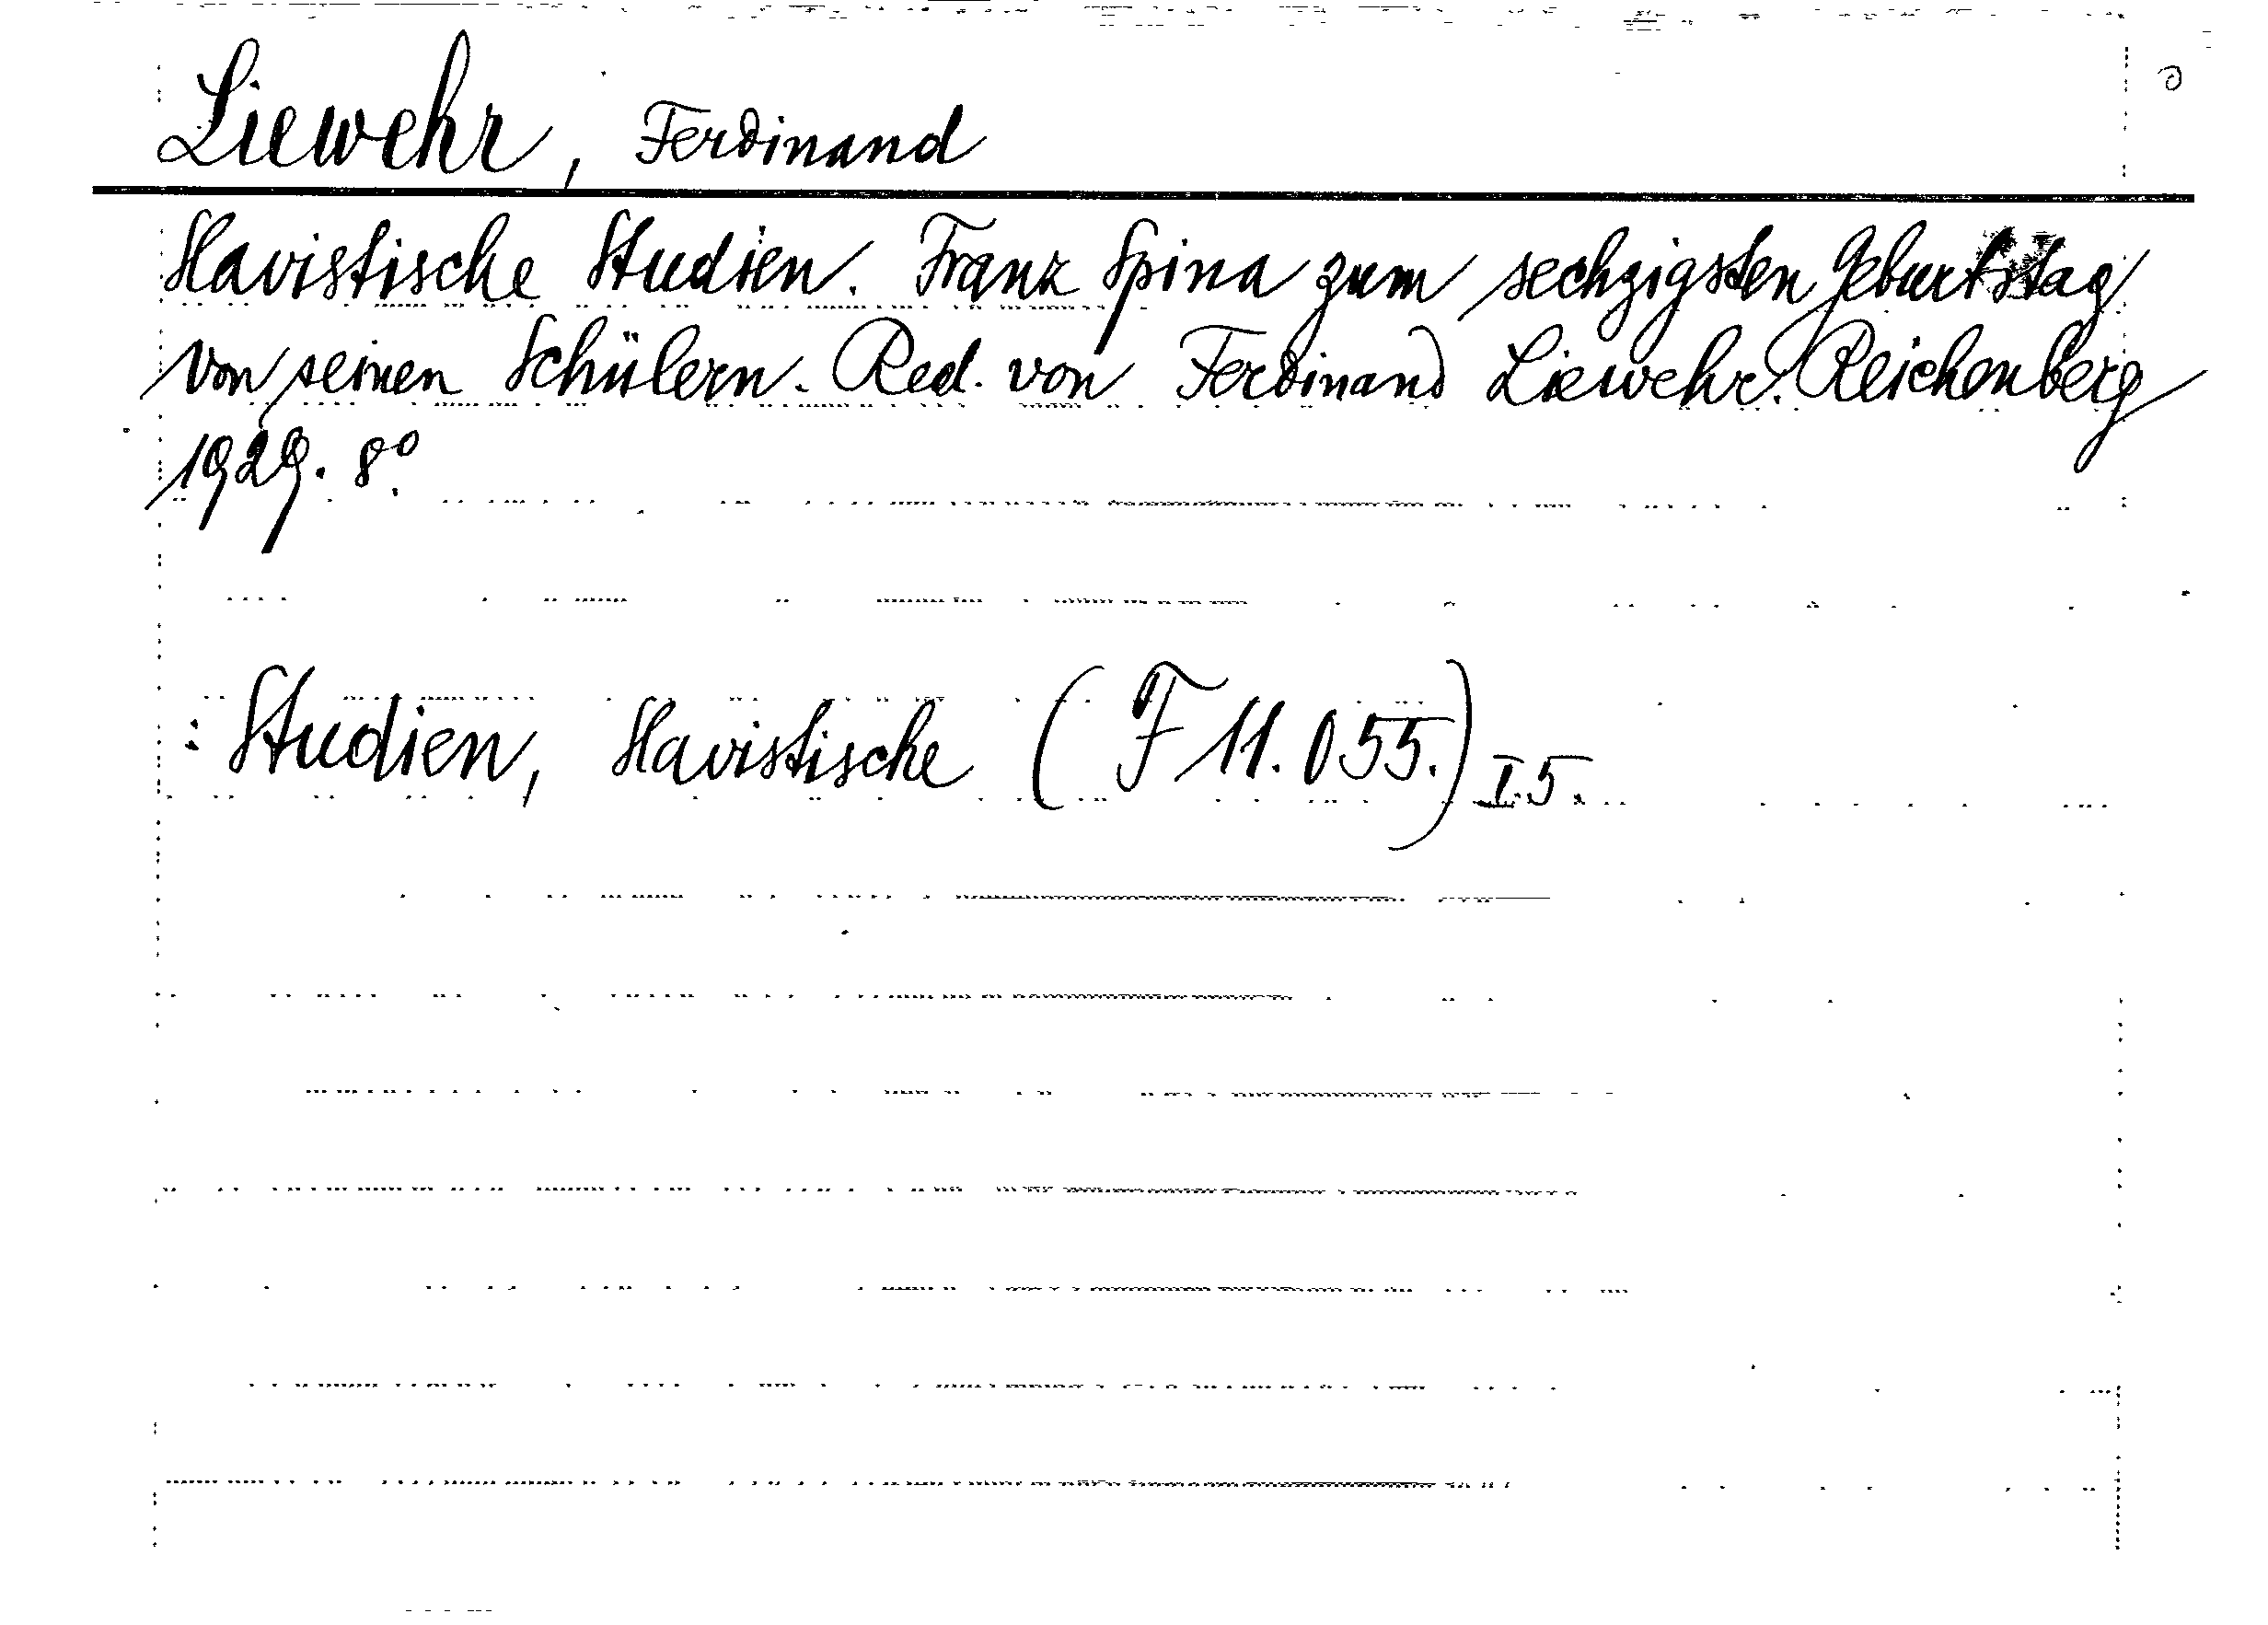 Liewehr, Ferdinand
Slavistische Studien. Franz Spina zum sechzigsten Geburtstag
von seinen Schülern. Red. von Ferdinand Liewehr. Reichenberg
1929. 8º.
: Studien, slavistische (F 11.055.) I.5.